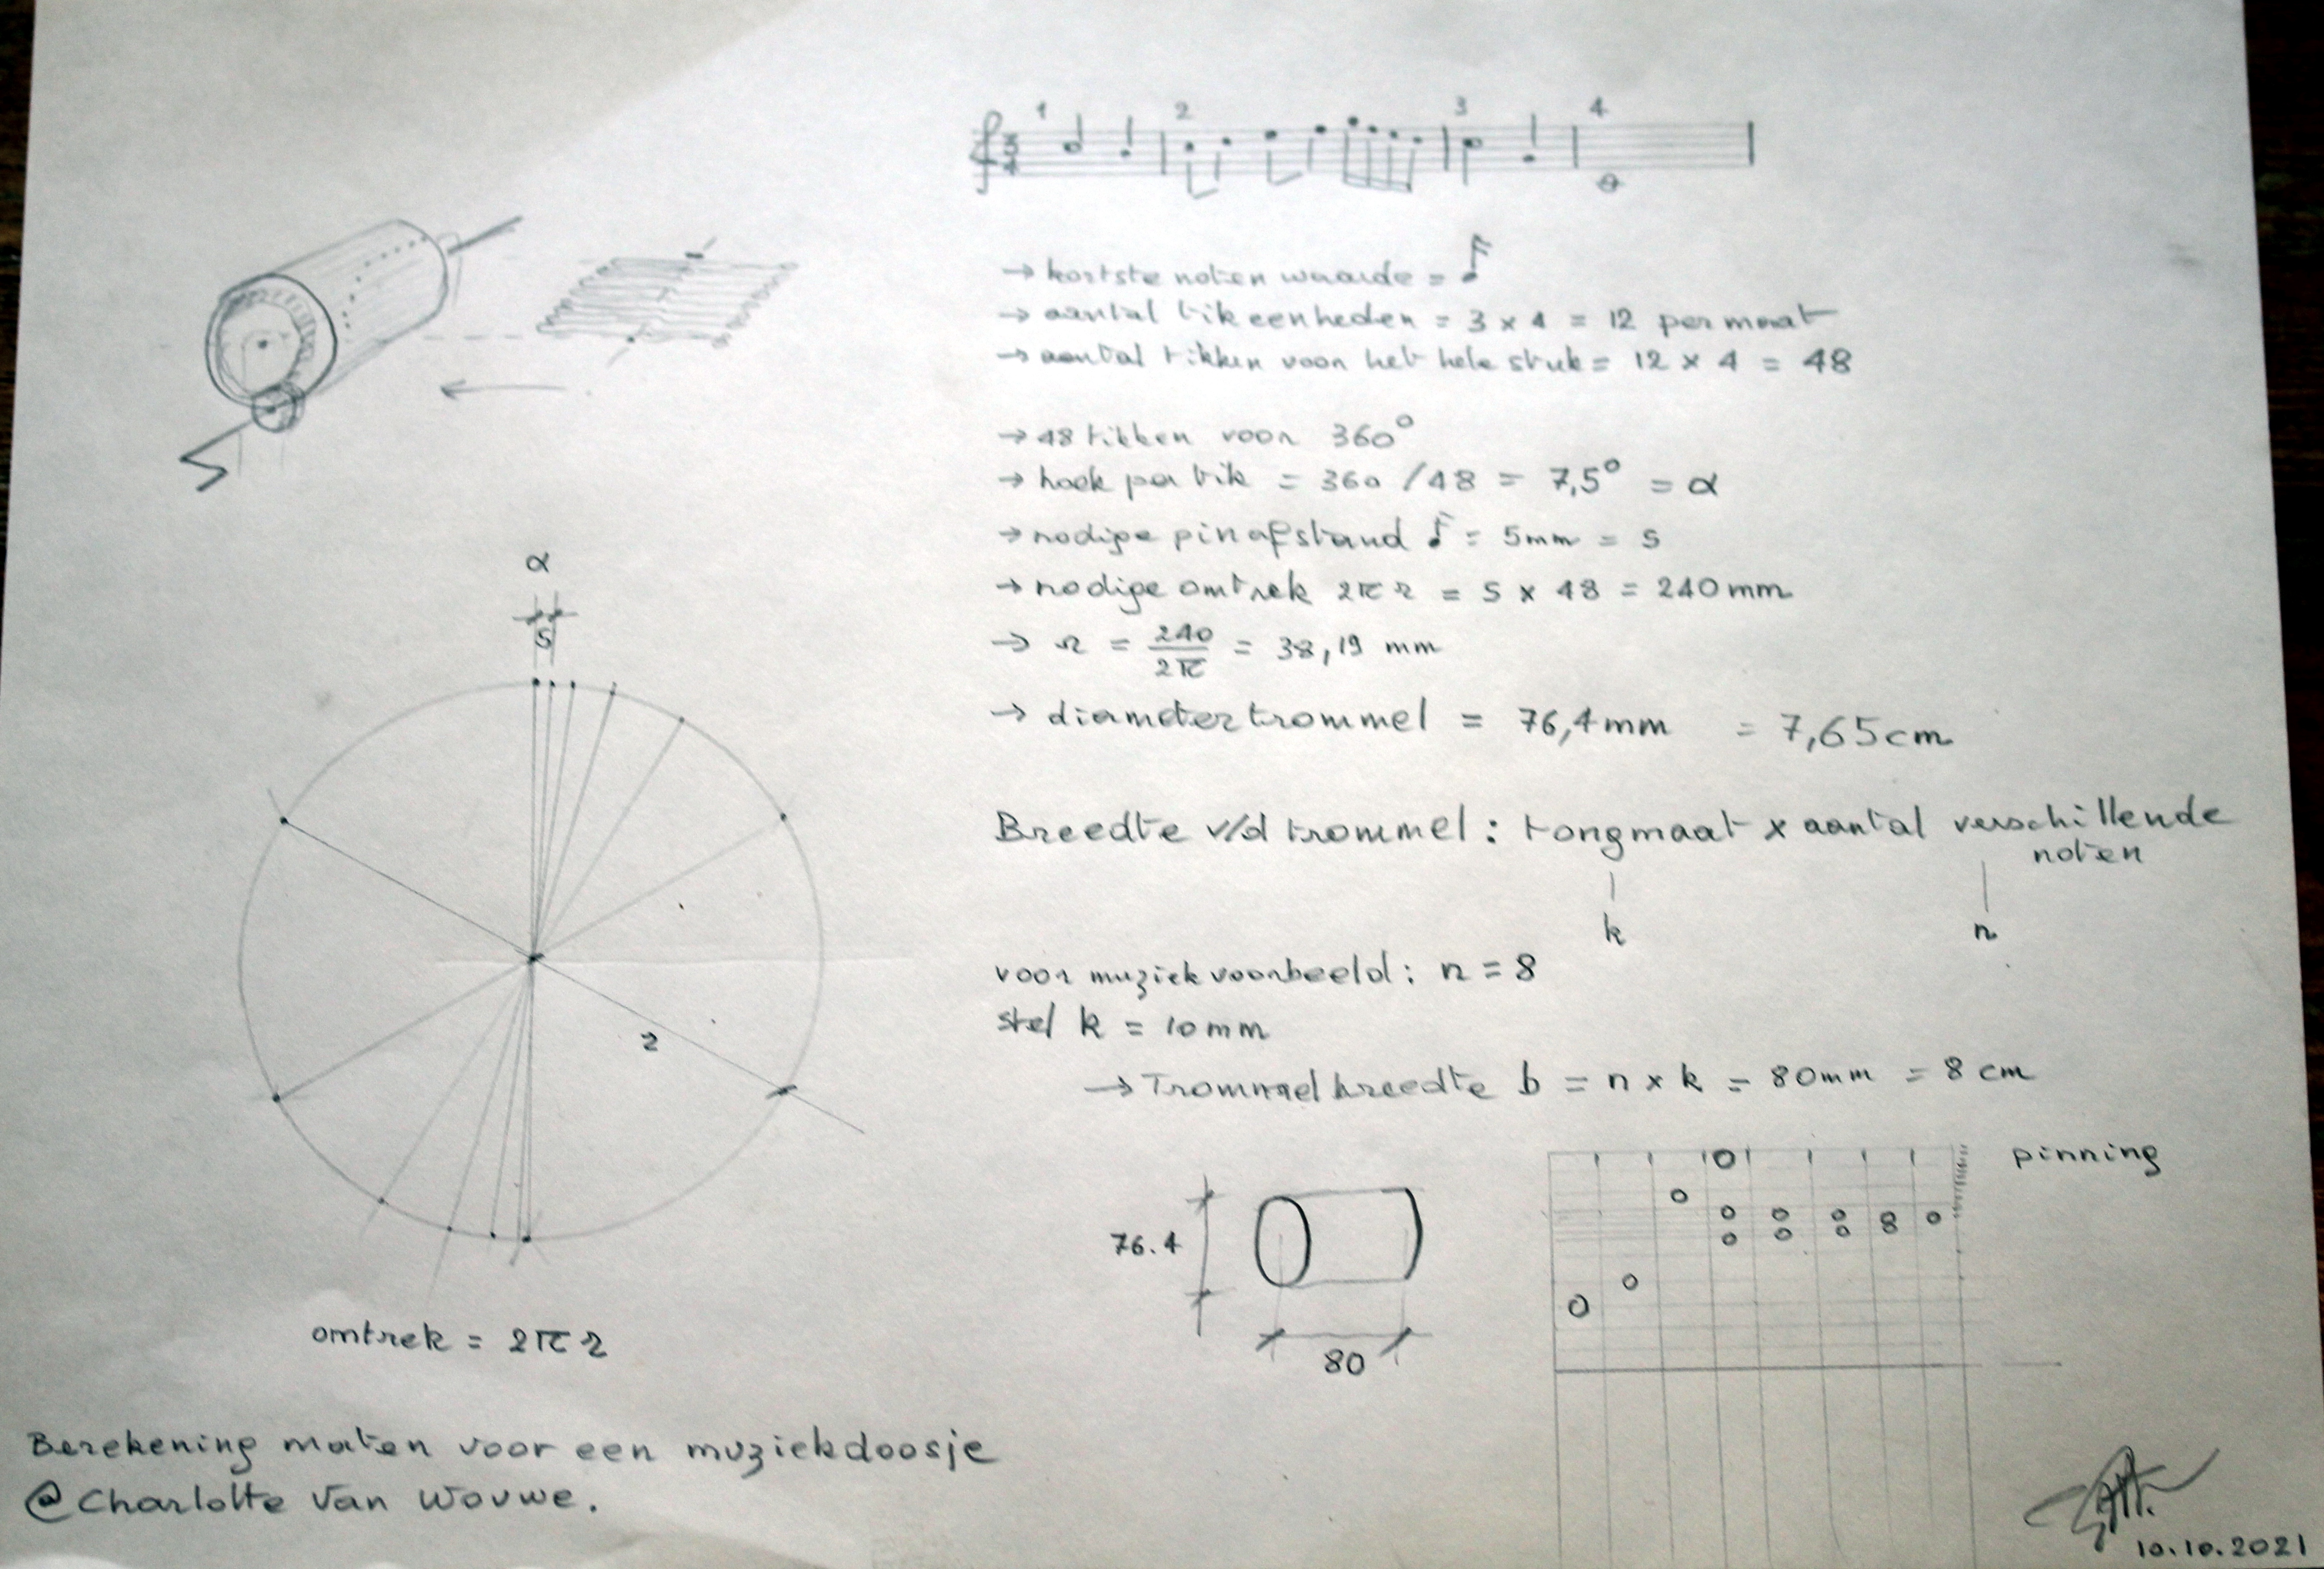 1 2 3 4
3
4
→ kortste noten waarde = ♪
→ aantal tikeenheden = 3 x 4 = 12 per maat
→ aantal tikken voor het hele stuk = 12 x 4 = 48
→ 48 tikken voor 360°
→ hoek per tik = 360 / 48 = 7,5° = α
→ nodige pinafstand ♪ = 5mm = s
→ nodige omtrek 2πr = s x 48 = 240 mm
→ r = 240/2π = 38,19 mm
→ diameter trommel = 76,4 mm = 7,65 cm
α
s
r
omtrek = 2πr
Breedte v/d trommel : tongmaat x aantal verschillende
noten
k n
voor muziekvoorbeeld : n = 8
stel k = 10mm
→ Trommelbreedte b = n x k = 80mm = 8 cm
76.4
80
pinning
Berekening maten voor een muziekdoosje
@ Charlotte Van Wouwe.
10.10.2021